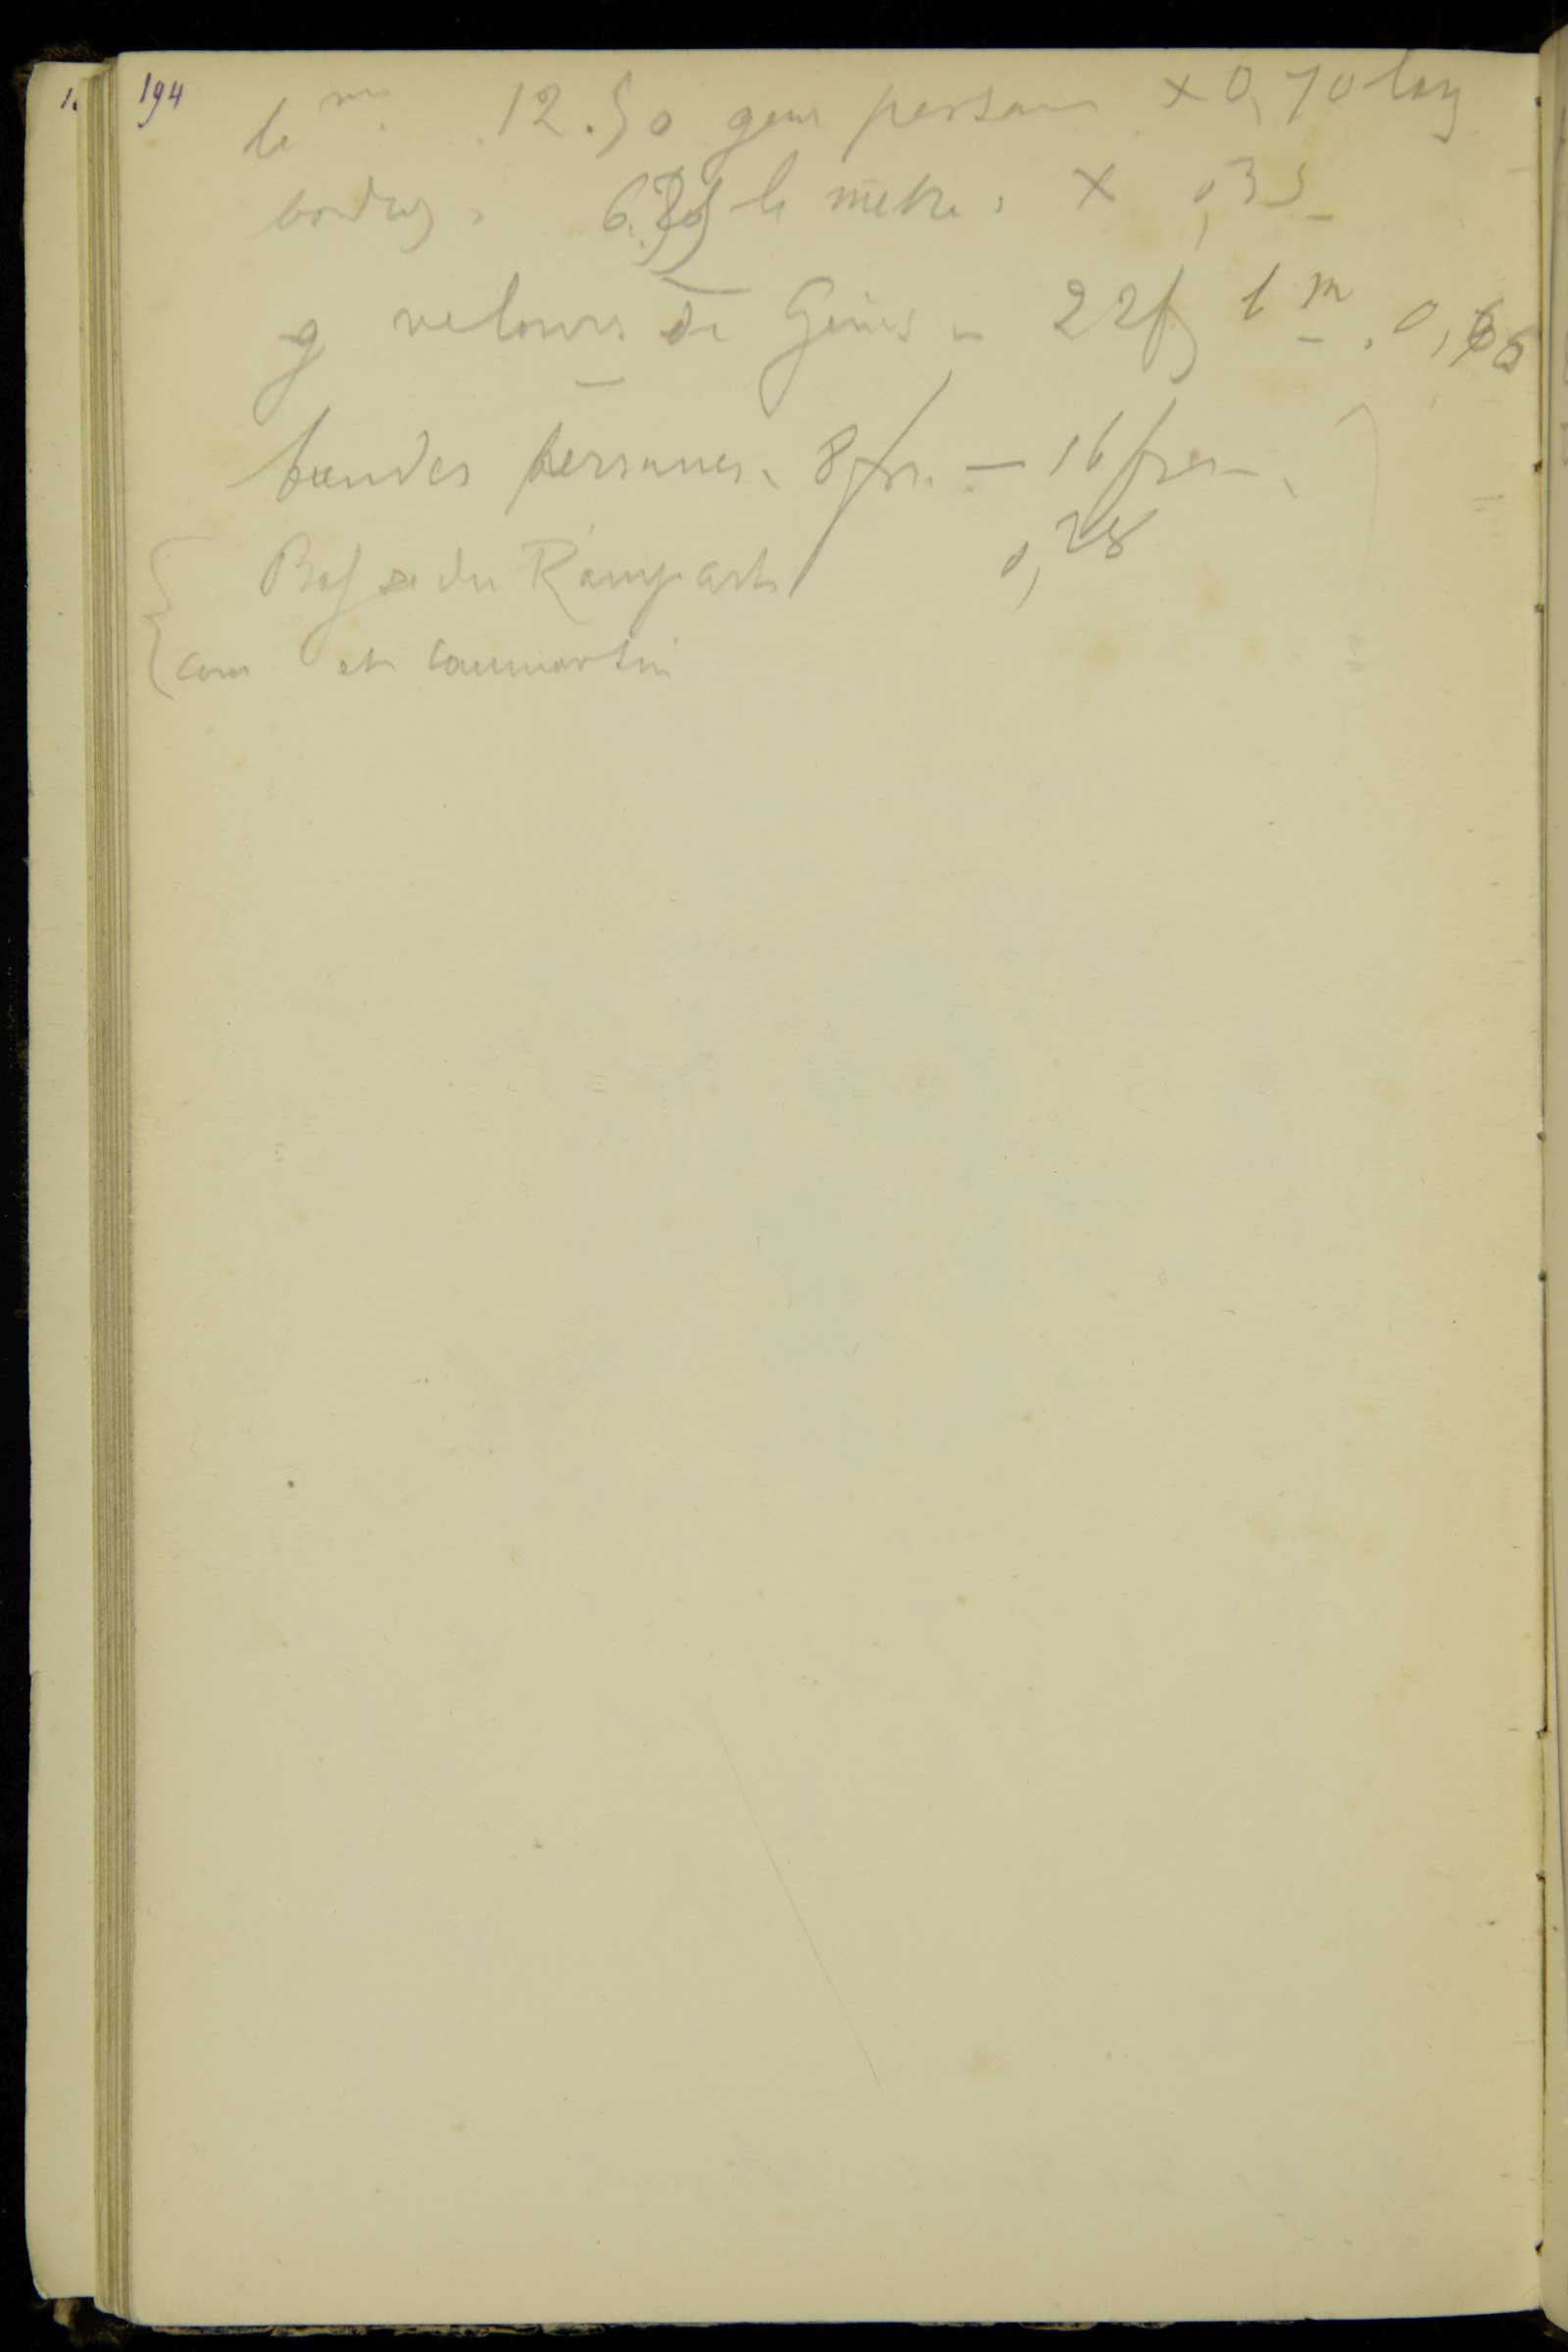 194
le m 12.50 genre persan x 0,70 larg
bordure. 6. le mètre, x ,35
g velours de Gènes 22f l m. 0,
bandes persanes 8frs. — 16 frcs
Basse du Rempart 0,28
et Caumartin